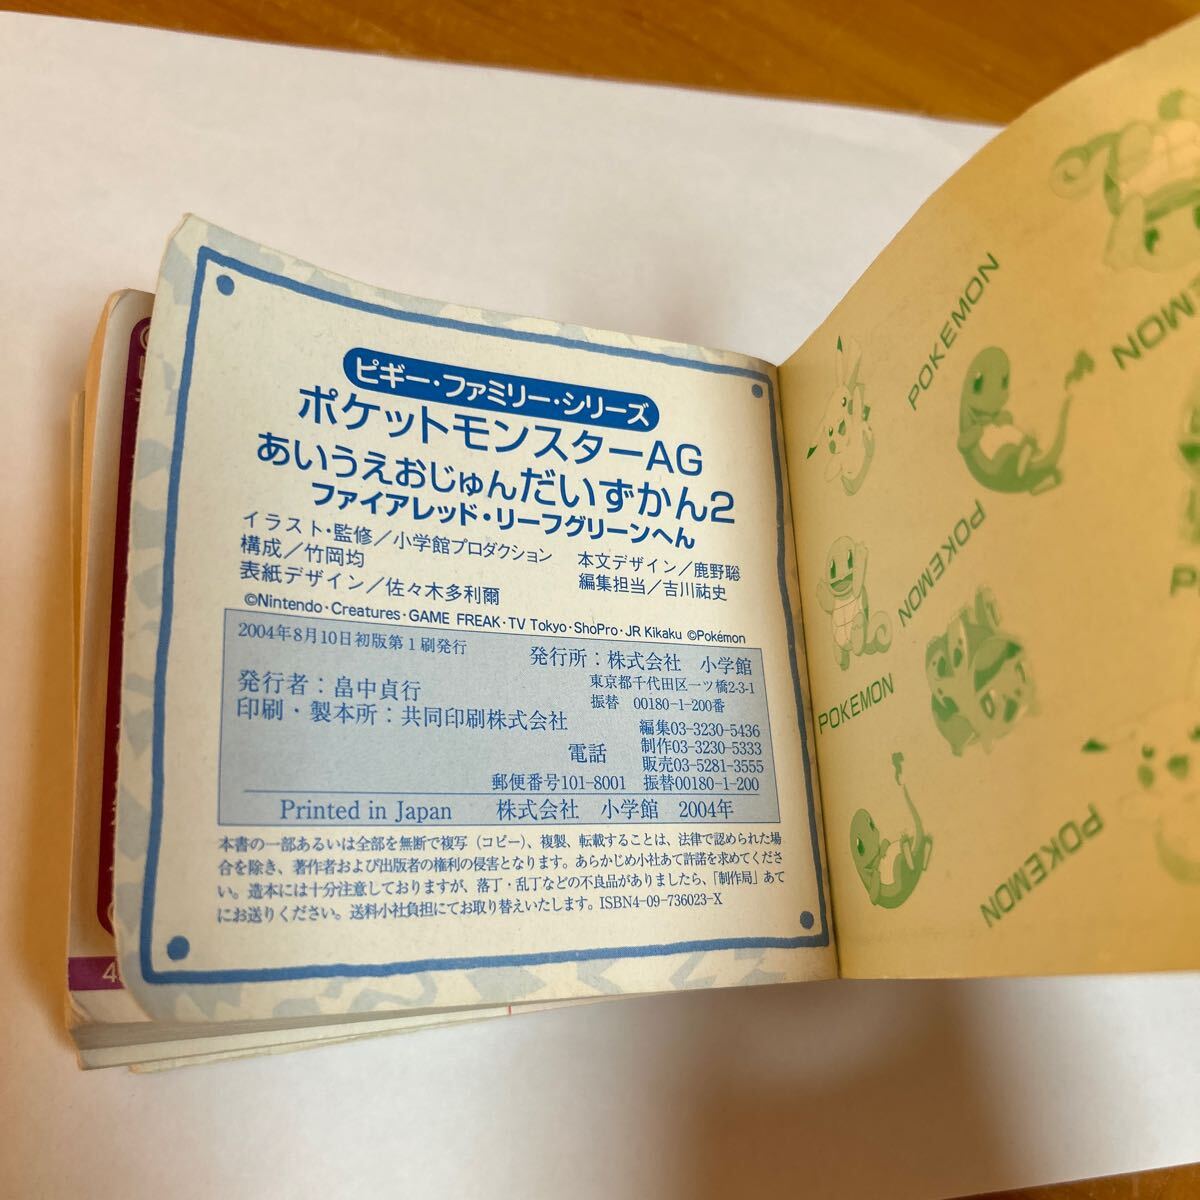 ピギー・ファミリー・シリーズ
ポケットモンスターAG
あいうえおじゅんだいずかん2
ファイアレッド・リーフグリーンへん
イラスト・監修／小学館プロダクション 本文デザイン／鹿野聡
構成／竹岡均 編集担当／吉川祐史
表紙デザイン／佐々木多利爾
©Nintendo・Creatures・GAME FREAK・TV Tokyo・ShoPro・JR Kikaku ©Pokémon
2004年8月10日初版第1刷発行
発行者：畠中貞行
印刷・製本所：共同印刷株式会社
発行所：株式会社 小学館
東京都千代田区一ツ橋2-3-1
振替 00180-1-200番
電話
編集03-3230-5436
制作03-3230-5333
販売03-5281-3555
郵便番号101-8001 振替00180-1-200
Printed in Japan 株式会社 小学館 2004年
本書の一部あるいは全部を無断で複写（コピー）、複製、転載することは、法律で認められた場
合を除き、著作者および出版者の権利の侵害となります。あらかじめ小社あて許諾を求めてくださ
い。造本には十分注意しておりますが、落丁・乱丁などの不良品がありましたら、「制作局」あて
にお送りください。送料小社負担にてお取り替えいたします。ISBN4-09-736023-X
POKEMON
POKEMON
POKEMON
POKEMON